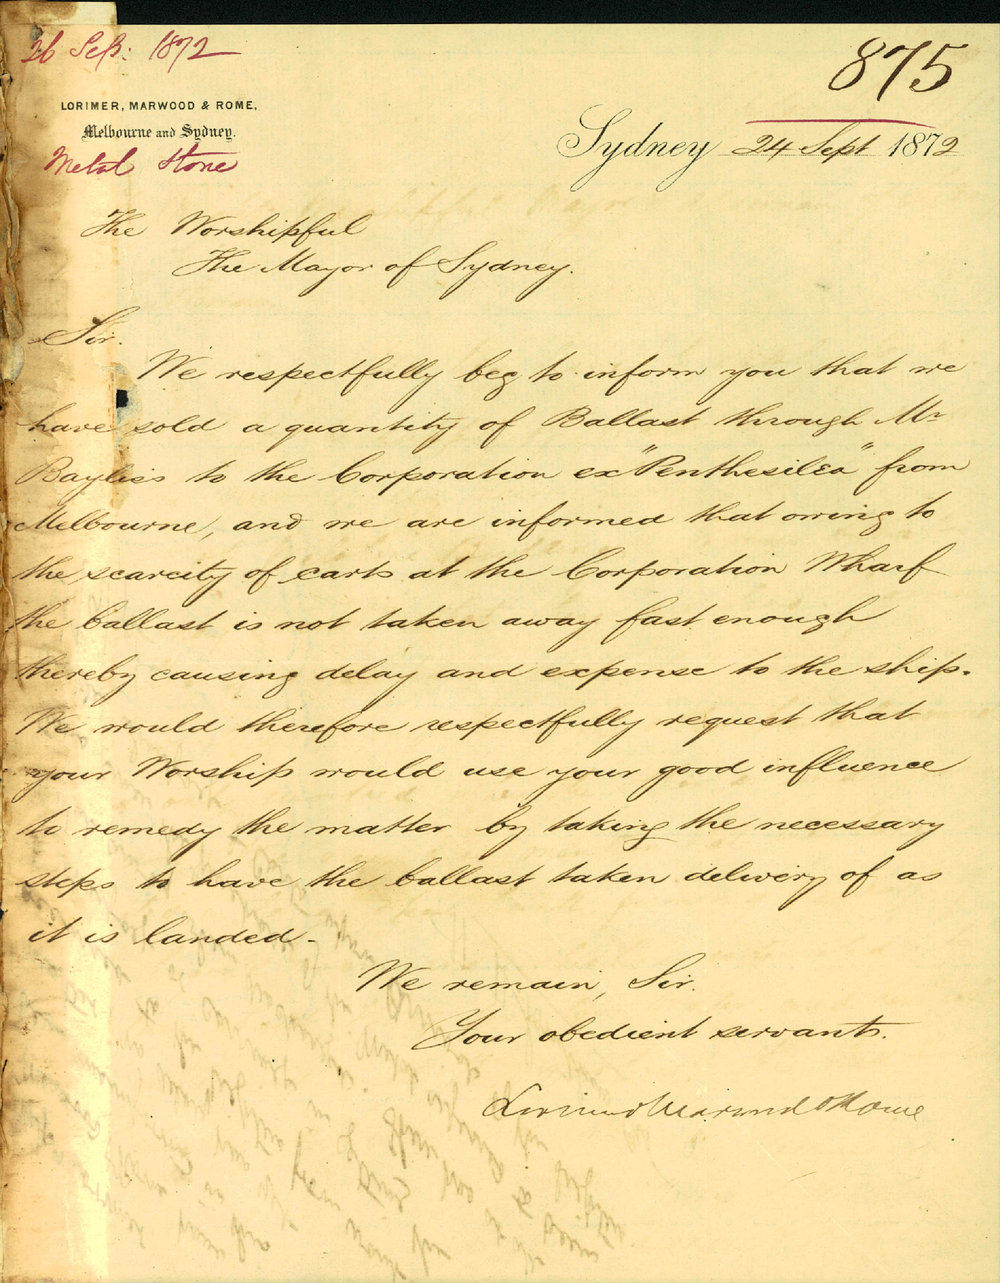 26 Sep: 1872
875
LORIMER, MARWOOD & ROME,
Melbourne and Sydney.
Metal Stone
Sydney 24 Sept 1872
The Worshipful
The Mayor of Sydney.
Sir.
We respectfully beg to inform you that we
have sold a quantity of Ballast through Mr
Bayliss to the Corporation ex "Penthesilea" from
Melbourne, and we are informed that owing to
the scarcity of carts at the Corporation Wharf
the ballast is not taken away fast enough
thereby causing delay and expense to the ship.
We would therefore respectfully request that
your Worship would use your good influence
to remedy the matter by taking the necessary
steps to have the ballast taken delivery of as
it is landed.
We remain, Sir.
Your obedient servants.
Lorimer Marwood & Rome